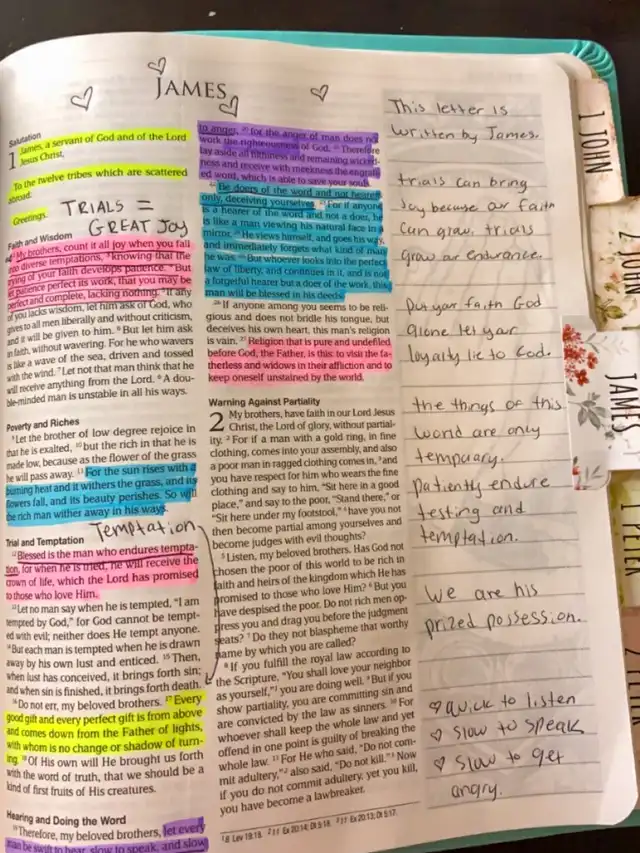 JAMES
Salutation
1 James, a servant of God and of the Lord
Jesus Christ,
To the twelve tribes which are scattered
abroad:
Greetings.
TRIALS =
GREAT JOY
Faith and Wisdom
2 My brothers, count it all joy when you fall
into diverse temptations, 3 knowing that the
trying of your faith develops patience. 4 But
let patience perfect its work, that you may be
perfect and complete, lacking nothing. 5 If any
of you lacks wisdom, let him ask of God, who
gives to all men liberally and without criticism,
and it will be given to him. 6 But let him ask
in faith, without wavering. For he who wavers
is like a wave of the sea, driven and tossed
with the wind. 7 Let not that man think that he
will receive anything from the Lord. 8 A dou-
ble-minded man is unstable in all his ways.
Poverty and Riches
9 Let the brother of low degree rejoice in
that he is exalted, 10 but the rich in that he is
made low, because as the flower of the grass
he will pass away. 11 For the sun rises with a
burning heat and it withers the grass, and its
flowers fall, and its beauty perishes. So will
the rich man wither away in his ways.
Temptation
Trial and Temptation
12 Blessed is the man who endures tempta-
tion, for when he is tried, he will receive the
crown of life, which the Lord has promised
to those who love Him.
13 Let no man say when he is tempted, "I am
tempted by God," for God cannot be tempt-
ed with evil; neither does He tempt anyone.
14 But each man is tempted when he is drawn
away by his own lust and enticed. 15 Then,
when lust has conceived, it brings forth sin;
and when sin is finished, it brings forth death.
16 Do not err, my beloved brothers. 17 Every
good gift and every perfect gift is from above
and comes down from the Father of lights,
with whom is no change or shadow of turn-
ing. 18 Of His own will He brought us forth
with the word of truth, that we should be a
kind of first fruits of His creatures.
Hearing and Doing the Word
19 Therefore, my beloved brothers, let every
man be swift to hear, slow to speak, and slow
to anger, 20 for the anger of man does not
work the righteousness of God. 21 Therefore
lay aside all filthiness and remaining wicked-
ness and receive with meekness the engraft-
ed word, which is able to save your souls.
22 Be doers of the word and not hearers
only, deceiving yourselves. 23 For if anyone
is a hearer of the word and not a doer, he
is like a man viewing his natural face in a
mirror. 24 He views himself, and goes his way,
and immediately forgets what kind of man
he was. 25 But whoever looks into the perfect
law of liberty, and continues in it, and is not
a forgetful hearer but a doer of the work, this
man will be blessed in his deeds.
26 If anyone among you seems to be reli-
gious and does not bridle his tongue, but
deceives his own heart, this man's religion
is vain. 27 Religion that is pure and undefiled
before God, the Father, is this: to visit the fa-
therless and widows in their affliction and to
keep oneself unstained by the world.
Warning Against Partiality
2 My brothers, have faith in our Lord Jesus
Christ, the Lord of glory, without partial-
ity. 2 For if a man with a gold ring, in fine
clothing, comes into your assembly, and also
a poor man in ragged clothing comes in, 3 and
you have respect for him who wears the fine
clothing and say to him, "Sit here in a good
place," and say to the poor, "Stand there," or
"Sit here under my footstool," 4 have you not
then become partial among yourselves and
become judges with evil thoughts?
5 Listen, my beloved brothers. Has God not
chosen the poor of this world to be rich in
faith and heirs of the kingdom which He has
promised to those who love Him? 6 But you
have despised the poor. Do not rich men op-
press you and drag you before the judgment
seats? 7 Do they not blaspheme that worthy
name by which you are called?
8 If you fulfill the royal law according to
the Scripture, "You shall love your neighbor
as yourself," 1 you are doing well. 9 But if you
show partiality, you are committing sin and
are convicted by the law as sinners. 10 For
whoever shall keep the whole law and yet
offend in one point is guilty of breaking the
whole law. 11 For He who said, "Do not com-
mit adultery," 2 also said, "Do not kill." 3 Now
if you do not commit adultery, yet you kill,
you have become a lawbreaker.
1 8 Lev 19:18. 2 11 Ex 20:14; Dt 5:18. 3 11 Ex 20:13; Dt 5:17.
This letter is
written by James.
trials can bring
Joy because our faith
can grow. trials
grow our endurance.
put your faith God
alone let your
loyalty lie to God.
the things of this
world are only
tempuary.
patiently endure
testing and
temptation.
We are his
prized possession.
quick to listen
slow to speak
slow to get
angry.
1 JOHN
2 JOHN
JAMES
1 PETER